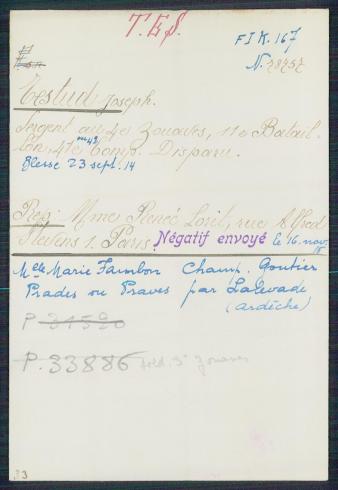 T.ES.
FIK. 167
N. 28252
Testud Joseph.
Sergent au 4e Zouaves, 11e Batail-
lon, 41e Comp. Disparu.
Blessé 23 sept. 14
Req: Mme Renée Loril, rue Alfred
Stevens 1. Paris. Négatif envoyé le 16 nov. 15
Melle Marie Fambon Champ. Goutier
Prades ou Praves par Lalevade
(ardèche)
P 31520
P. 33886 sold. 3e Zouaves